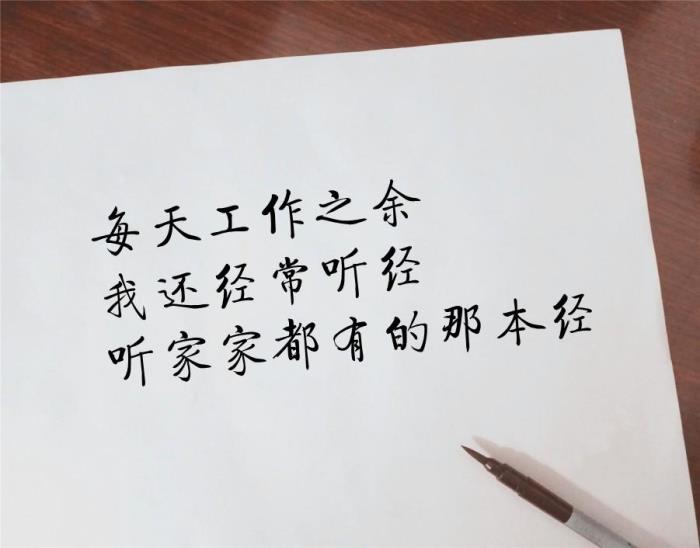 每天工作之余
我还经常听经
听家家都有的那本经